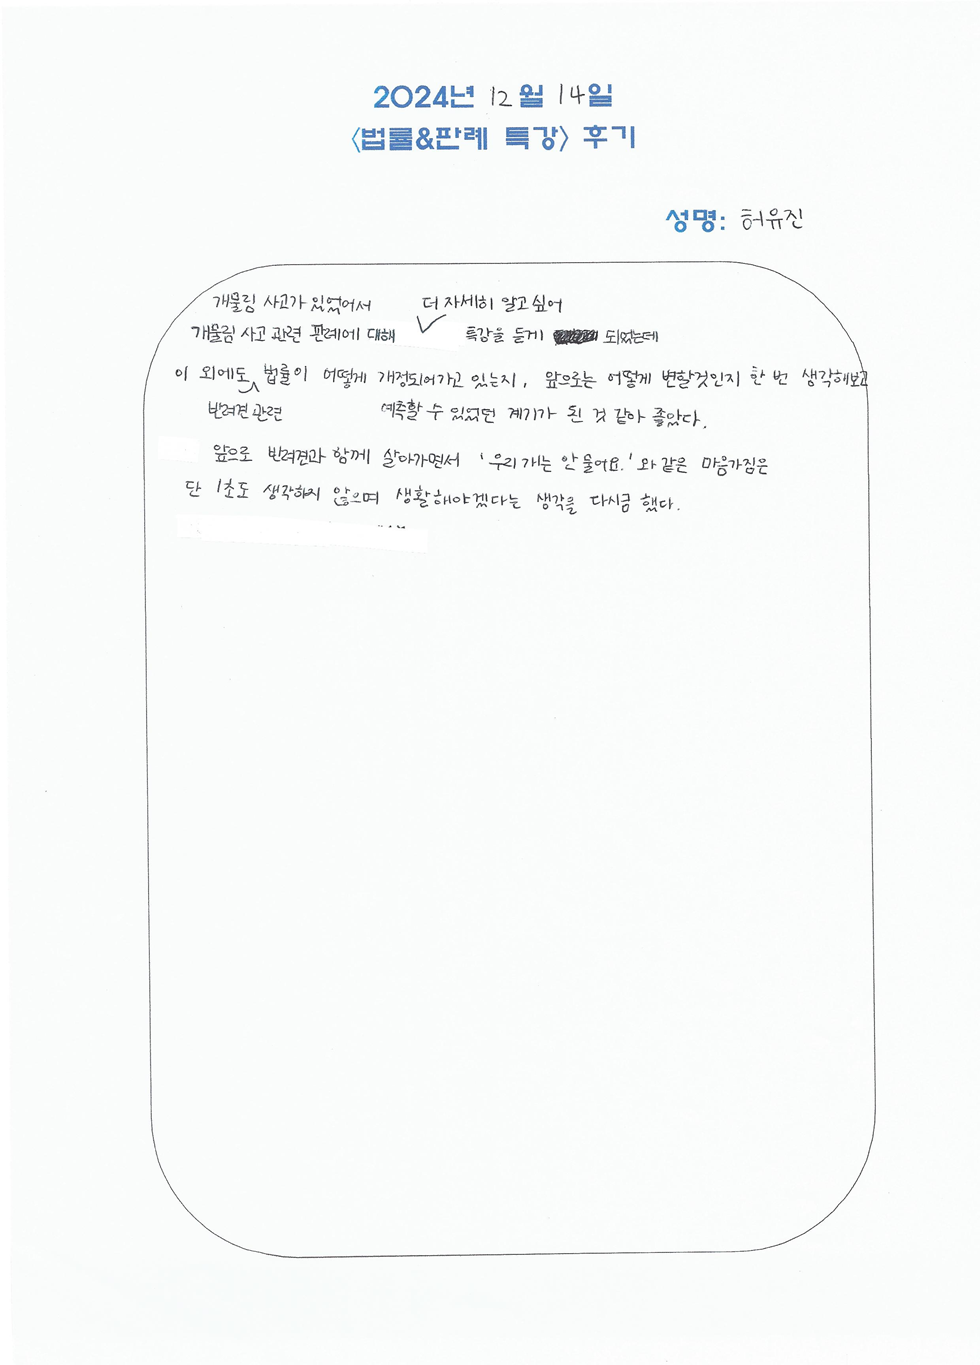 2024년 12월 14일
<법률&판례 특강> 후기
성명: 허유진
개물림 사고가 있었어서 더 자세히 알고싶어
개물림 사고 관련 판례에 대해 특강을 듣게 되었는데
이 외에도 법률이 어떻게 개정되어가고 있는지, 앞으로는 어떻게 변할것인지 한 번 생각해보고
반려견 관련 예측할 수 있었던 계기가 된 것 같아 좋았다.
앞으로 반려견과 함께 살아가면서 '우리 개는 안 물어요.'와 같은 마음가짐은
단 1초도 생각하지 않으며 생활해야겠다는 생각을 다시금 했다.